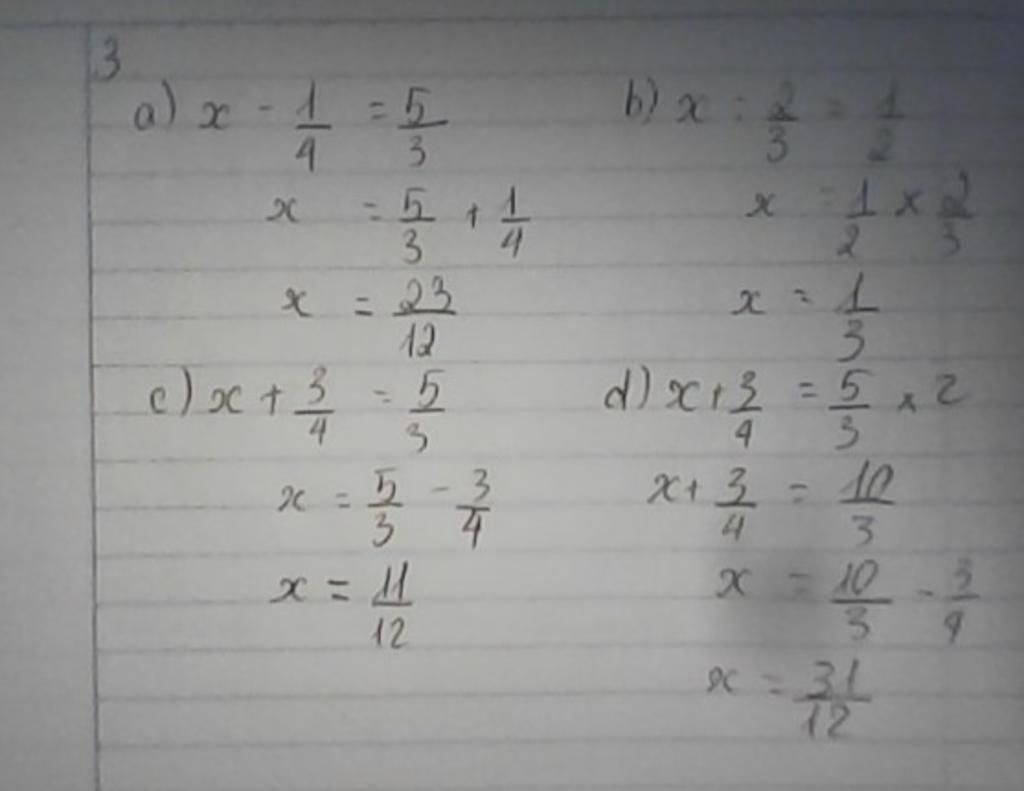 3
a) x - 1/4 = 5/3
x = 5/3 + 1/4
x = 23/12
b) x : 2/3 = 1/2
x = 1/2 × 2/3
x = 1/3
c) x + 3/4 = 5/3
x = 5/3 - 3/4
x = 11/12
d) x + 3/4 = 5/3 × 2
x + 3/4 = 10/3
x = 10/3 - 3/4
x = 31/12